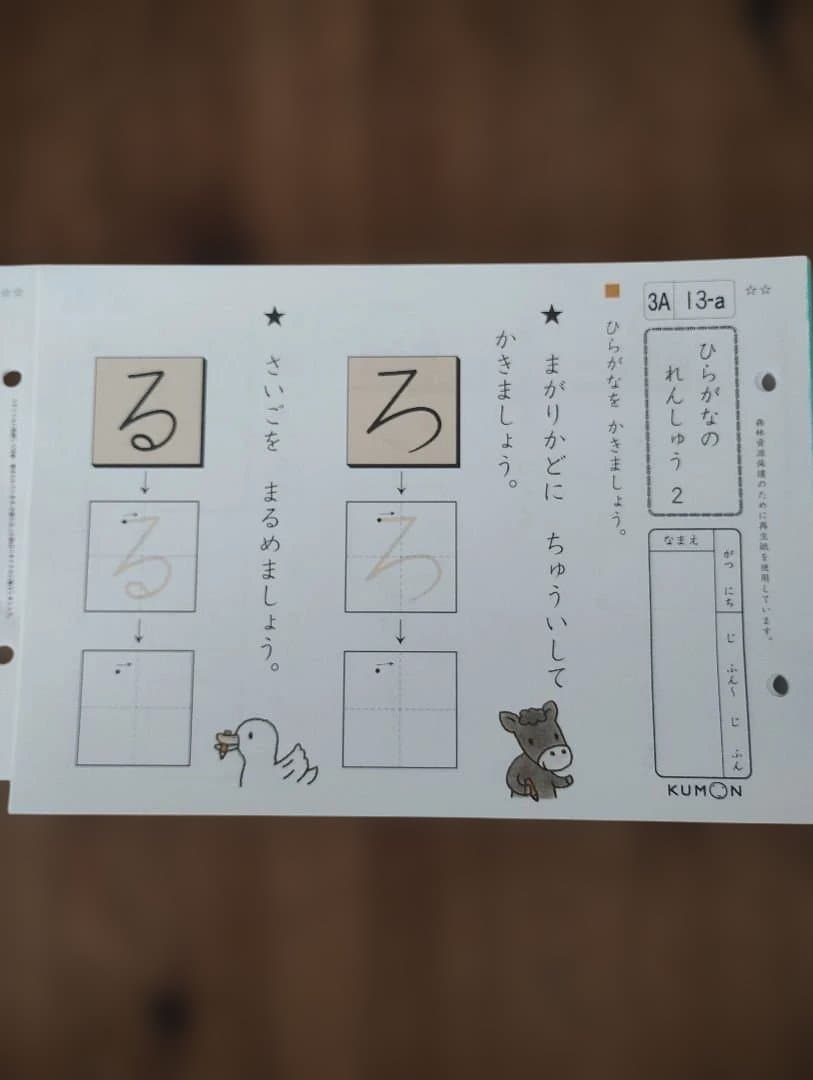 ☆☆
森林資源保護のために再生紙を使用しています。
3A 13-a
ひらがなの
れんしゅう 2
がつ にち じ ふん〜 じ ふん
なまえ
KUMON
ひらがなを かきましょう。
★ まがりかどに ちゅういして
かきましょう。
ろ
↓
ろ
↓
★ さいごを まるめましょう。
る
↓
る
↓
☆☆